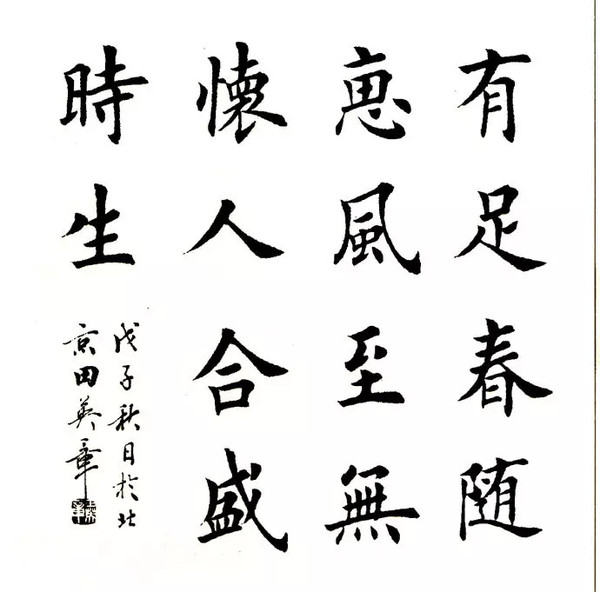 有足春随
惠風至無
懷人合盛
時生
戊子秋日於北
京田英章